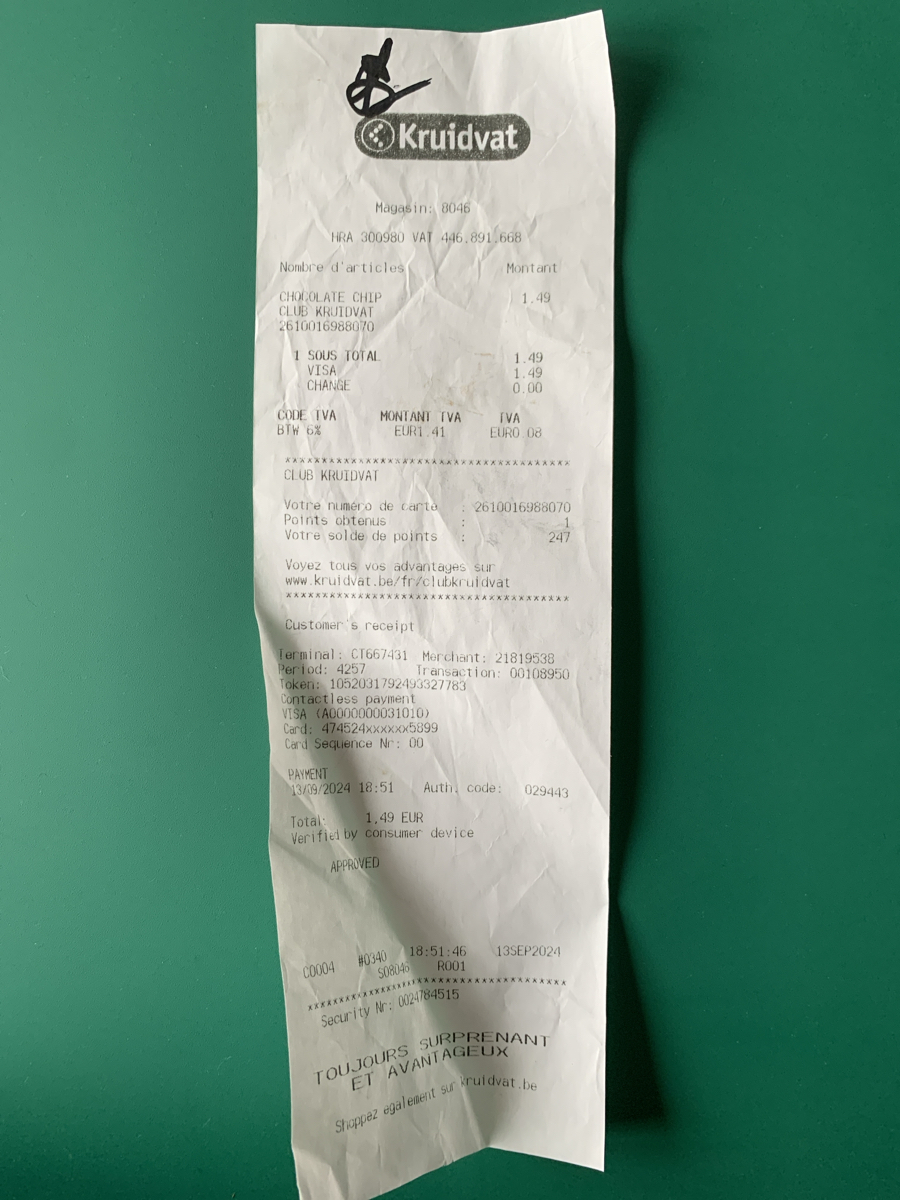 Kruidvat
Magasin: 8046
HRA 300980 VAT 446.891.668
Nombre d'articles Montant
CHOCOLATE CHIP 1.49
CLUB KRUIDVAT
2610016988070
1 SOUS TOTAL 1.49
VISA 1.49
CHANGE 0.00
CODE TVA MONTANT TVA TVA
BTW 6% EUR1.41 EUR0.08
***************************************
CLUB KRUIDVAT
Votre numéro de carte : 2610016988070
Points obtenus : 1
Votre solde de points : 247
Voyez tous vos advantages sur
www.kruidvat.be/fr/clubkruidvat
***************************************
Customer's receipt
Terminal: CT667431 Merchant: 21819538
Period: 4257 Transaction: 00108950
Token: 1052031792493327783
Contactless payment
VISA (A0000000031010)
Card: 474524xxxxxx5899
Card Sequence Nr: 00
PAYMENT
13/09/2024 18:51 Auth. code: 029443
Total: 1,49 EUR
Verified by consumer device
APPROVED
C0004 #0340 18:51:46 13SEP2024
S08046 R001
***************************************
Security Nr: 0024784515
TOUJOURS SURPRENANT
ET AVANTAGEUX
Shoppez également sur kruidvat.be